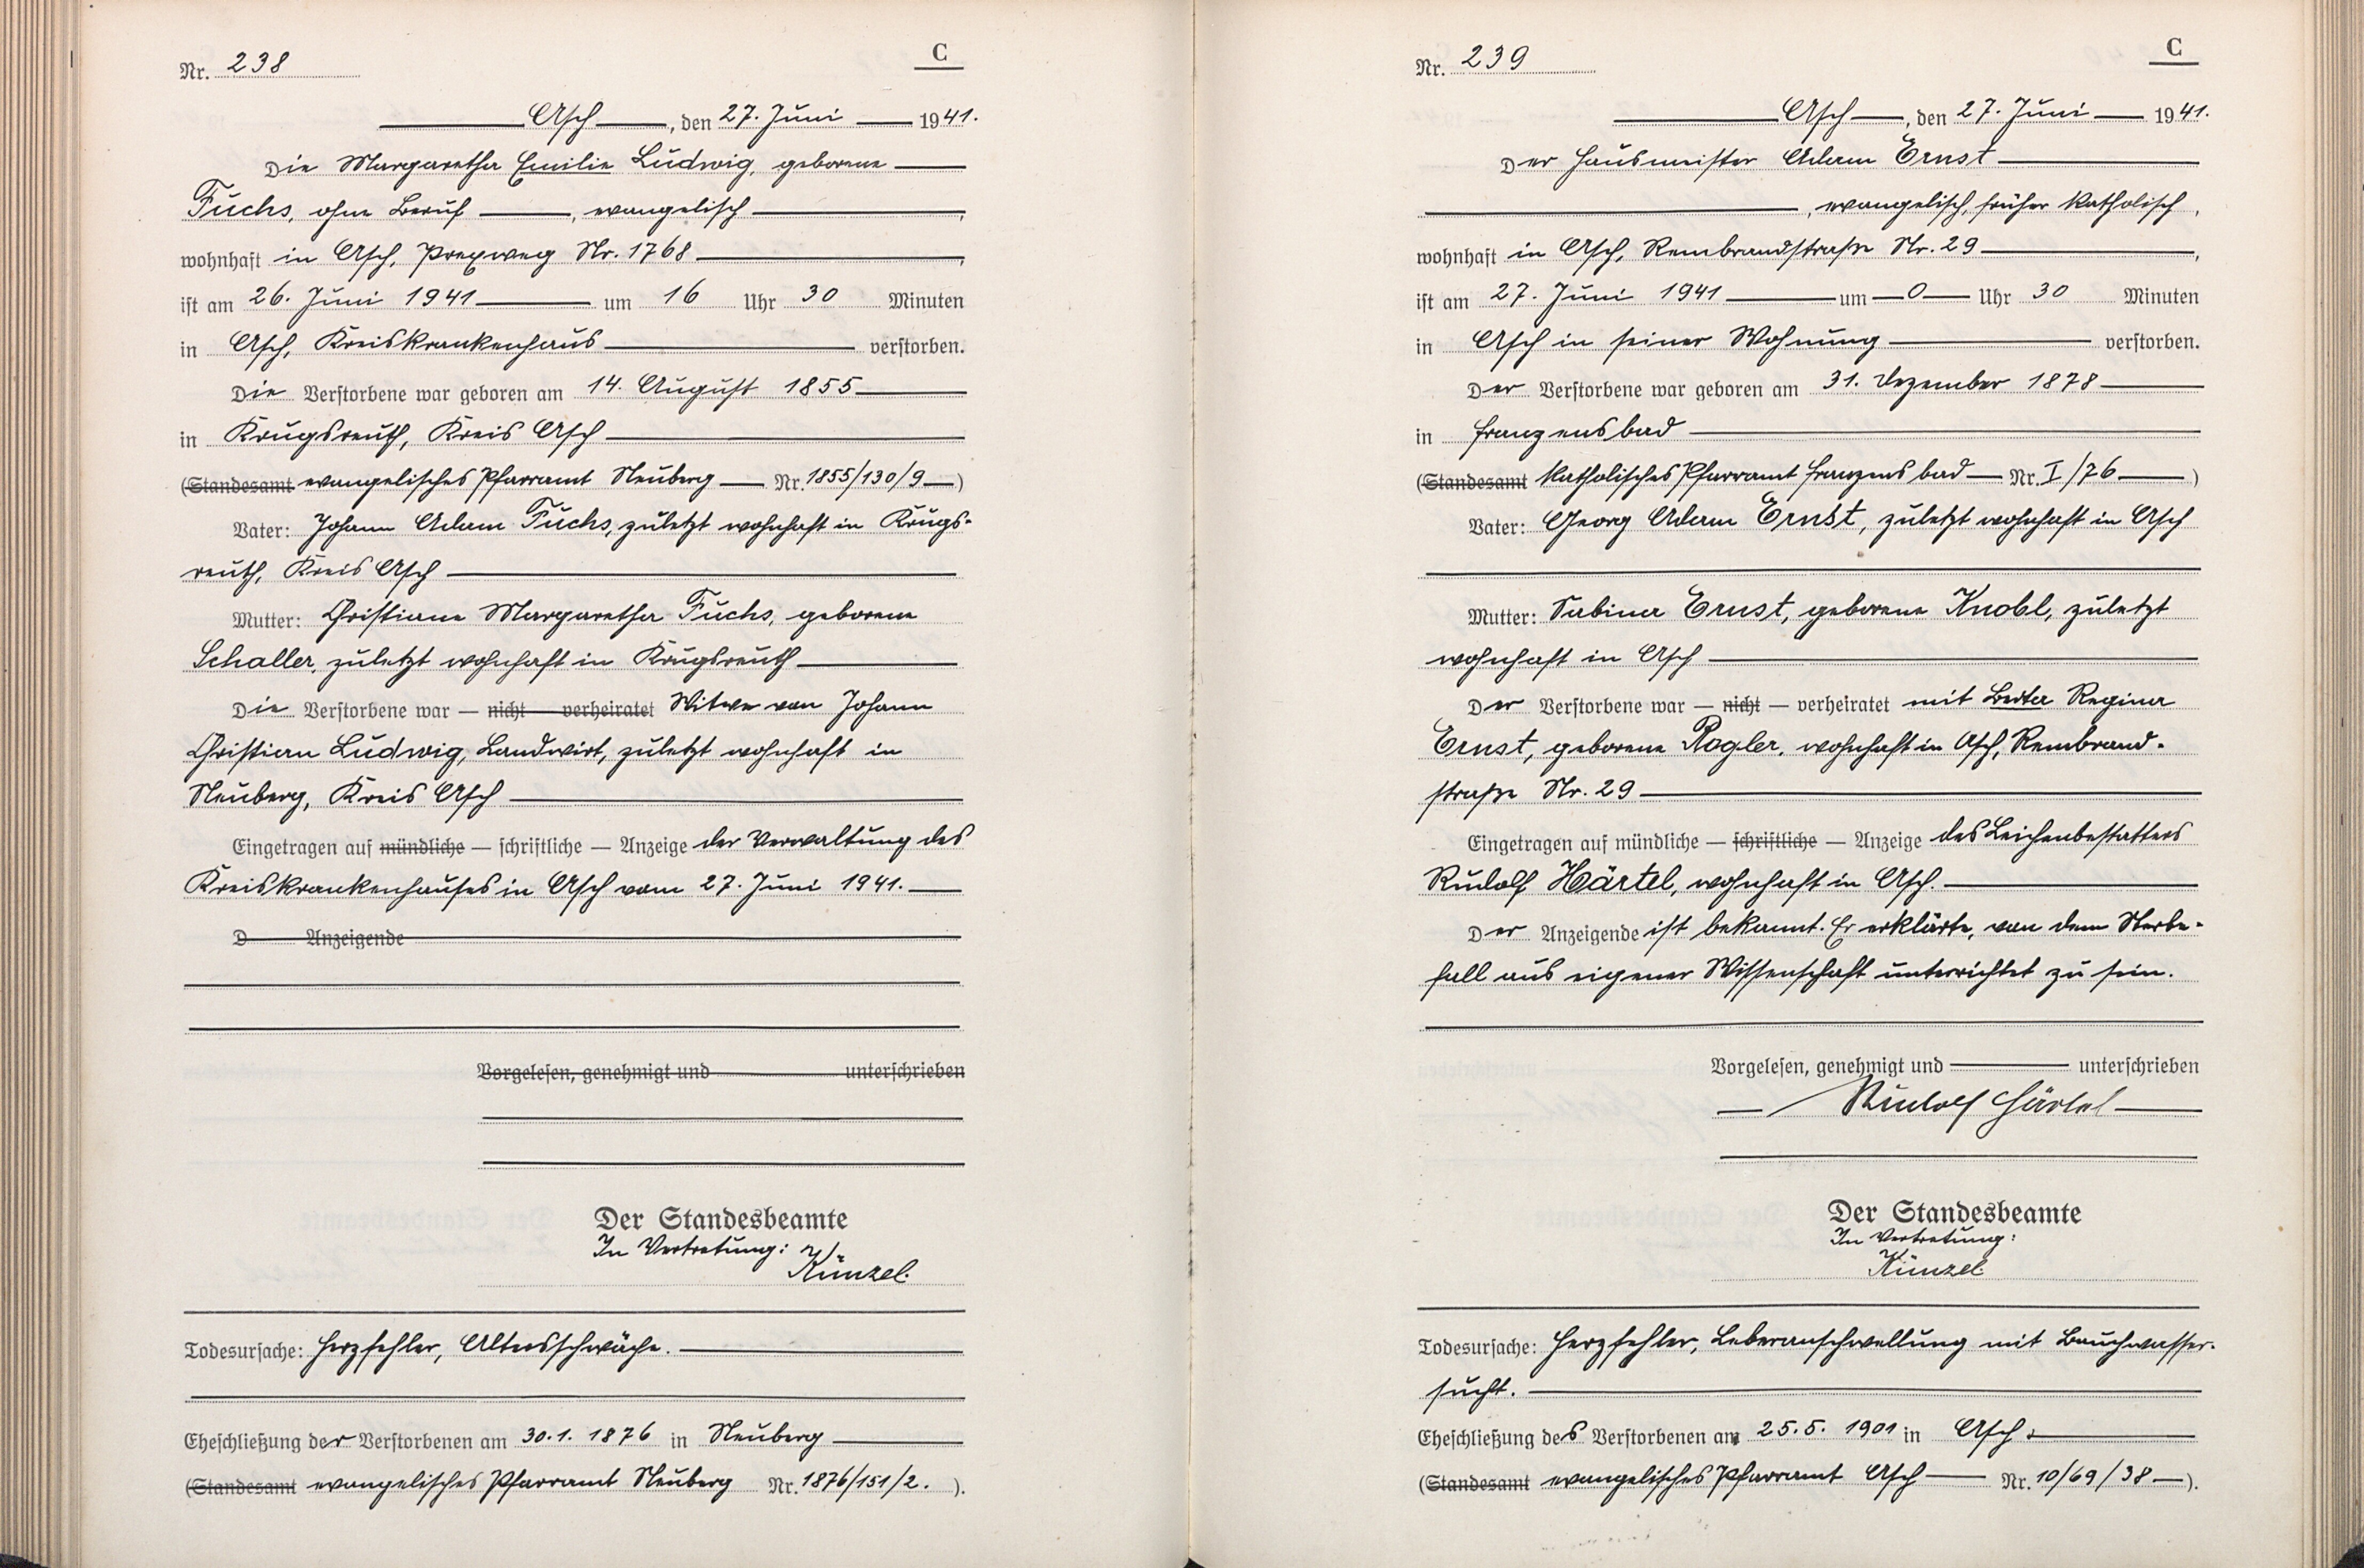 Nr. 238
C
Asch, den 27. Juni 1941.
Die Margaretha Emilie Ludwig, geborene
Fuchs, ohne Beruf, evangelisch,
wohnhaft in Asch, Prexweg Nr. 1768,
ist am 26. Juni 1941 um 16 Uhr 30 Minuten
in Asch, Kreiskrankenhaus verstorben.
Die Verstorbene war geboren am 14. August 1855
in Krugsreuth, Kreis Asch
(Standesamt evangelisches Pfarramt Neuberg Nr. 1855/130/9)
Vater: Johann Adam Fuchs, zuletzt wohnhaft in Krugs-
reuth, Kreis Asch
Mutter: Christiane Margaretha Fuchs, geborene
Schaller, zuletzt wohnhaft in Krugsreuth
Die Verstorbene war — nicht — verheiratet Witwe von Johann
Christian Ludwig, Landwirt, zuletzt wohnhaft in
Neuberg, Kreis Asch
Eingetragen auf mündliche — schriftliche — Anzeige der Verwaltung des
Kreiskrankenhauses in Asch vom 27. Juni 1941.
D Anzeigende
Vorgelesen, genehmigt und unterschrieben
Der Standesbeamte
In Vertretung:
Künzel.
Todesursache: Herzfehler, Altersschwäche.
Eheschließung der Verstorbenen am 30.1.1876 in Neuberg
(Standesamt evangelisches Pfarramt Neuberg Nr. 1876/151/2.).
Nr. 239
C
Asch, den 27. Juni 1941.
Der Hausmeister Adam Ernst
, evangelisch, früher katholisch,
wohnhaft in Asch, Rembrandstraße Nr. 29,
ist am 27. Juni 1941 um 0 Uhr 30 Minuten
in Asch in seiner Wohnung verstorben.
Der Verstorbene war geboren am 31. Dezember 1878
in Franzensbad
(Standesamt katholisches Pfarramt Franzensbad Nr. I/76)
Vater: Georg Adam Ernst, zuletzt wohnhaft in Asch
Mutter: Sabina Ernst, geborene Knobl, zuletzt
wohnhaft in Asch
Der Verstorbene war — nicht — verheiratet mit Berta Regina
Ernst, geborene Rogler, wohnhaft in Asch, Rembrand-
straße Nr. 29
Eingetragen auf mündliche — schriftliche — Anzeige des Leichenbestatters
Rudolf Härtel, wohnhaft in Asch.
Der Anzeigende ist bekannt. Er erklärte, von dem Sterbe-
fall aus eigener Wissenschaft unterrichtet zu sein.
Vorgelesen, genehmigt und unterschrieben
Rudolf Härtel
Der Standesbeamte
In Vertretung:
Künzel
Todesursache: Herzfehler, Leberanschwellung mit Bauchwasser-
sucht.
Eheschließung des Verstorbenen am 25.5.1901 in Asch
(Standesamt evangelisches Pfarramt Asch Nr. 10/69/38).